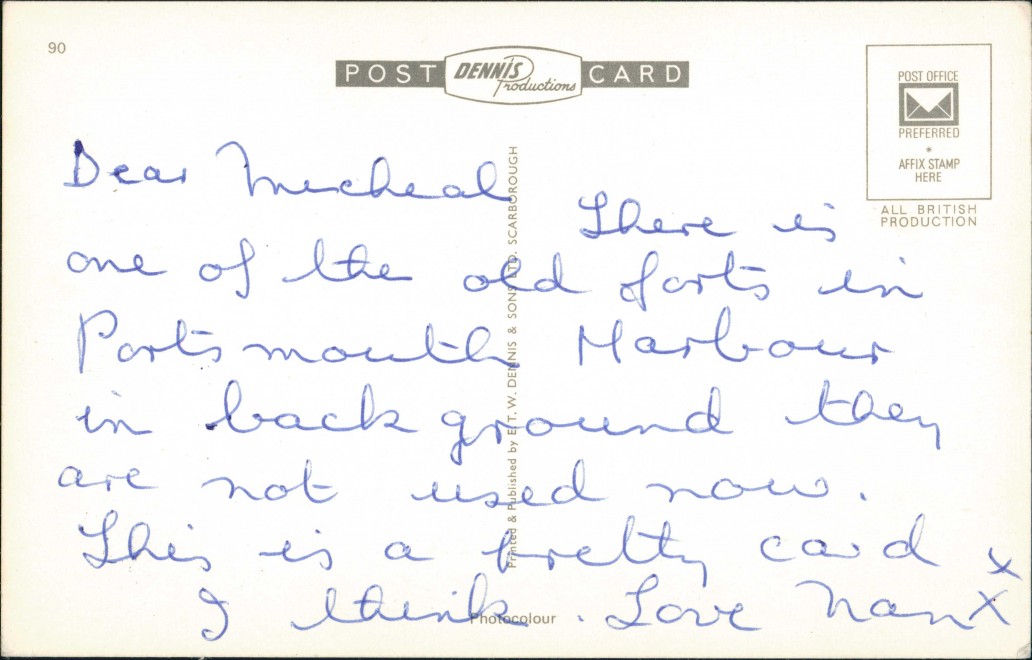 90
POST DENNIS Productions CARD
POST OFFICE
PREFERRED
*
AFFIX STAMP
HERE
ALL BRITISH
PRODUCTION
Dear Micheal
There is
one of the old forts in
Portsmouth Harbour
in back ground they
are not used now.
This is a pretty card x
I think. Love Nan X
Printed & Published by E. T. W. DENNIS & SONS LTD. SCARBOROUGH
Photocolour